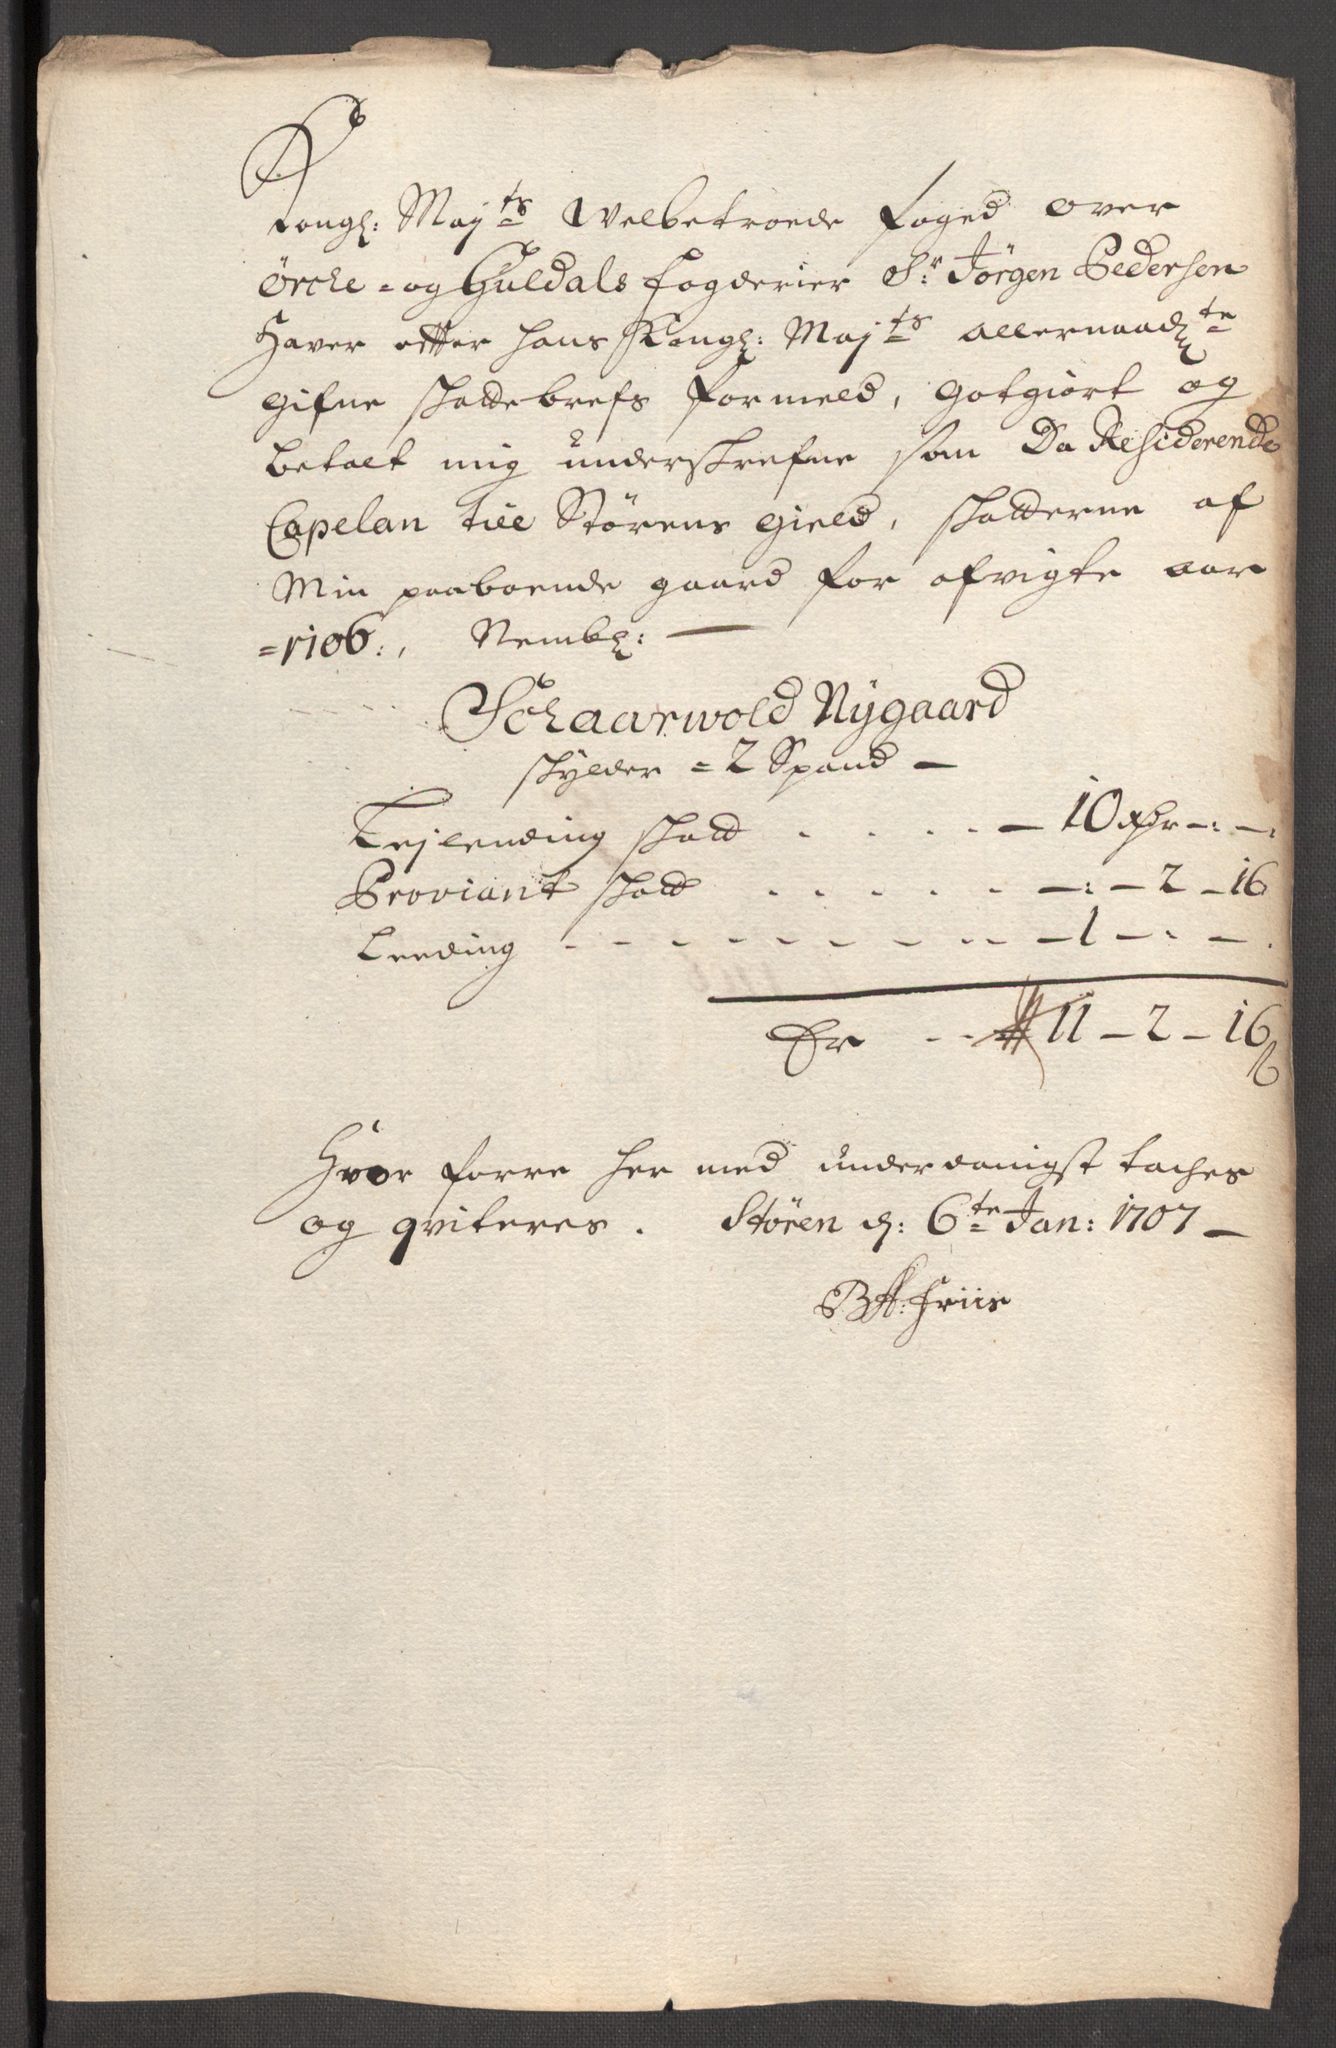 Kongl: Majts Welbetroede foged over
Örche- og Guldals fogderier Sr Jörgen Pedersen
Haver efter hans Kongl: Majts allernaadte
gifne skattebrefs formeld, gotgiort og
betalt mig underskrefne som Da Residerende
Capelan till Störens gield, skatterne af
Min paaboende gaard for afvigte aar
=1706:, Nembl: —
Schaarwold Nygaard
skylder = 2 Spand —
Leylending skatt . . . . — 10 Rdr —: —:
Proviant skatt . . . . . —: — 2 — 16
Leeding - - - - - - - - — 1 — : — .
Er - - 11 — 2 — 16
Hvor forre her med underdanigst taches
og qviteres. Stören d: 6te Jan: 1707 —
BA: Friis